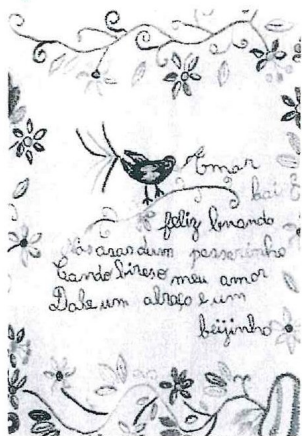 Amar
bai
feliz buando
nas asas dum passarinho
Cando bires o meu amor
Dale um abraço e um
beijinho